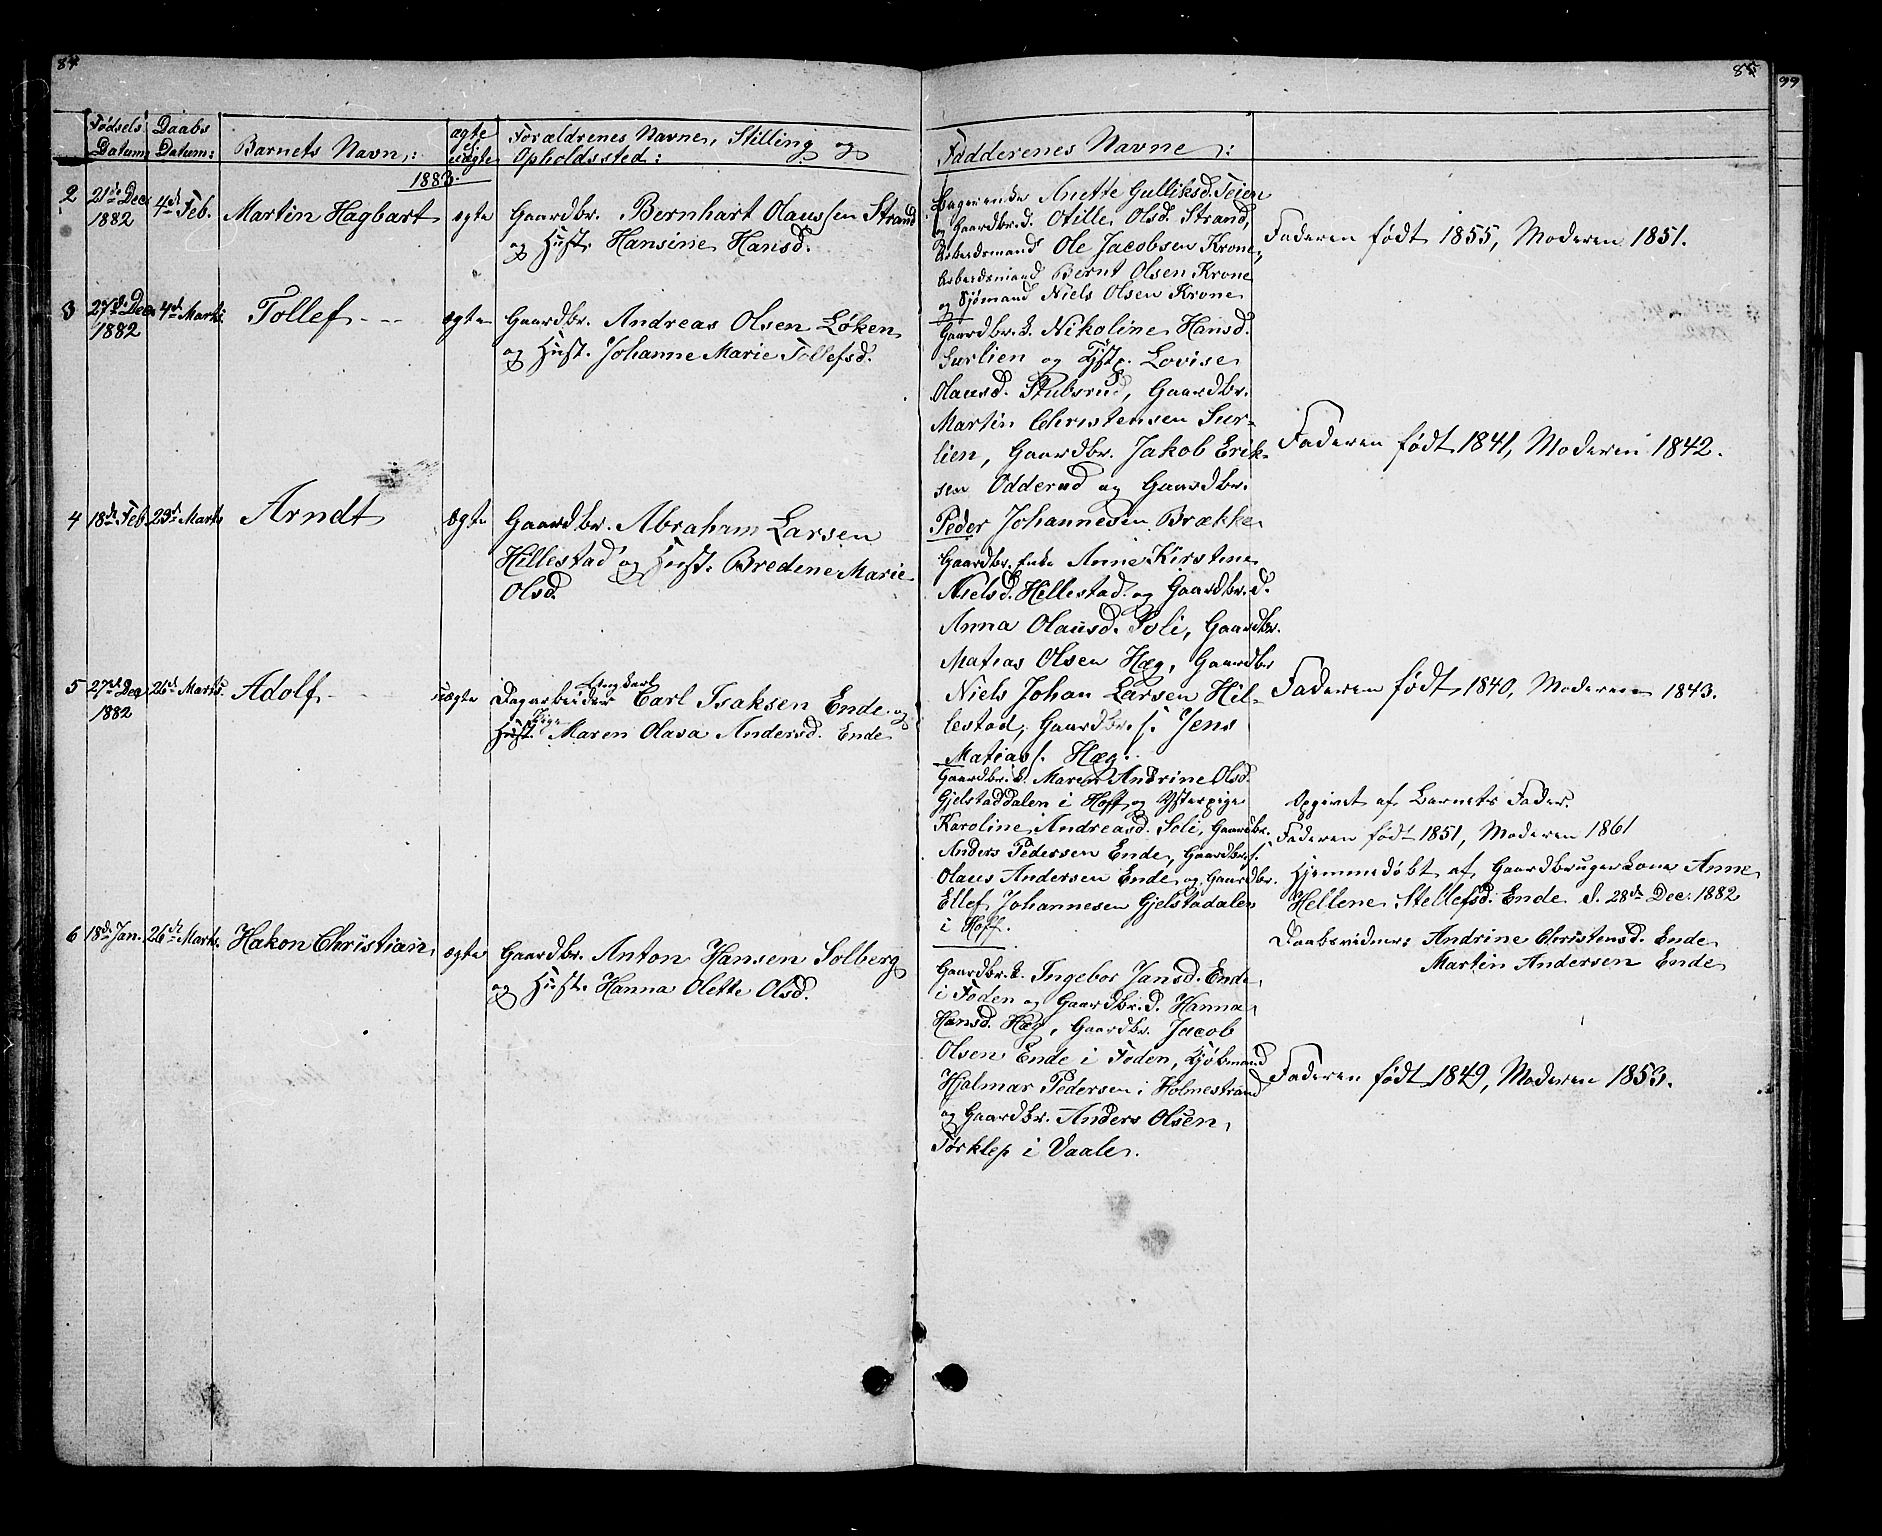 84
85
99
Fødsels Datum:
Daabs Datum:
Barnets Navn:
ægte el. uægte
Forældrenes Navne, Stilling og
Opholdssted:
Fadderenes Navne:
1883.
2 21de Dec. 4de Feb. Martin Hagbart ægte Gaardbr. Bernhart Olaussen Strand
1882
og Hust. Hansine Hansd.
Anette Gulliksd. Teien
og Gaardbr.d. Otille Olsd. Strand,
Arbeidsmand Ole Jacobsen Krone,
Arbeidsmand Bernt Olsen Krone
og Sjømand Niels Olsen Krone
Faderen født 1855, Moderen 1851.
3 27de Dec. 4de Marts Tollef ægte Gaardbr. Andreas Olsen Løken
1882
og Hust. Johanne Marie Tollefsd.
Gaardbr.k. Nikoline Hansd.
Surlien og Lovise
Olausd. Stubsrud, Gaardbr.
Martin Christensen Sur-
lien, Gaardbr. Jakob Erik-
sen Odderud og Gaardbr.
Peder Johannesen Brække
Faderen født 1841, Moderen 1842.
4 18de Feb. 23de Marts Arndt ægte Gaardbr. Abraham Larsen
Hillestad og Hust. Bredine Marie
Olsd.
Gaardbr. Enke Anne Kirstine
Nielsd. Hillestad og Gaardbr.d.
Anna Olausd. Soli, Gaardbr.
Matias Olsen Hæg, Gaardbr
Niels Johan Larsen Hil-
lestad, Gaardbr.s. Jens
Matiass. Hæg.
Faderen født 1840, Moderen 1843.
5 27de Dec. 26de Marts Adolf uægte Ungkarl
1882
Dagarbeider Carl Isaksen Ende og
Pige
Hust. Maren Olava Andersd. Ende
Gaardbr.k. Maren Andrine Olsd.
Gjelstaddalen i Hoff og
Karoline Andreasd. Soli, Gaardbr.
Anders Pedersen Ende, Gaardbr.s.
Olaus Andersen Ende og Gaardbr.
Ellef Johannesen Gjelstadalen
i Hoff.
Opgivet af Barnets Fader.
Faderen født 1851, Moderen 1861
Hjemmedøbt af Gaardbrugerkone Anne
Hellene Stellefsd. Ende d. 28de Dec. 1882
Daabsvidner: Andrine Christensd. Ende
Martin Andersen Ende
6 18de Jan. 26de Marts Hakon Christian ægte Gaardbr. Anton Hansen Solberg
og Hust. Hanna Olette Olsd.
Gaardbr.k. Ingebor Jansd. Ende
i Foden og Gaardbr.d. Hanna
Hansd. Hæg, Gaardbr. Jacob
Olsen Ende i Foden, Kjøbmand
Hjalmar Pedersen i Holmestrand
og Gaardbr. Anders Olsen
Tørklep i Vaale.
Faderen født 1849, Moderen 1853.